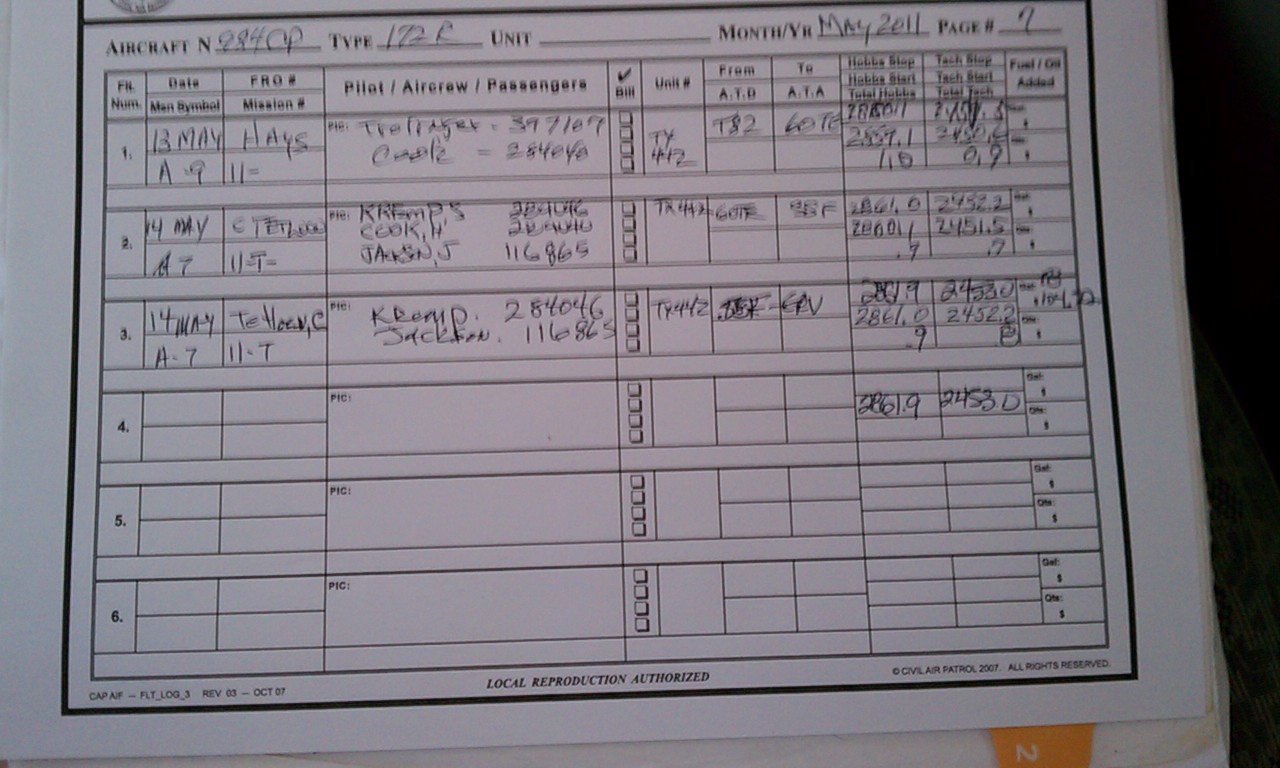 AIRCRAFT N 984CP TYPE 172R UNIT MONTH/YR MAY 2011 PAGE # 7
Flt. Num. Date FRO # Pilot / Aircrew / Passengers ✔ Bill Unit # From To Hobbs Stop Tach Stop Fuel / Oil Added
Msn Symbol Mission # A.T.D A.T.A Hobbs Start Tach Start
Total Hobbs Total Tach
1. 13 MAY HAYS PIC: 397107 TX 442 T82
Cook = 284040 2859.1
A-9 11- 1.0 0.9
2. 14 MAY PIC: KREMP, S 284046 TX442 60TE 2861.0 2452.2
COOK, H 284040 2860.1 2451.5
A7 11-T- JACKSON, J 116865 .9 .7
3. 14 MAY Tetlow, C PIC: Kremp. 284046 TX442 ERV 2861.9 2453.0
Jackson. 116865 2861.0 2452.2
A-7 11-T .9 8
4. PIC: 2861.9 2453.0 Gal: $ Qts: $
5. PIC: Gal: $ Qts: $
6. PIC: Gal: $ Qts: $
CAP AIF — FLT_LOG_3 REV 03 — OCT 07 LOCAL REPRODUCTION AUTHORIZED © CIVIL AIR PATROL 2007. ALL RIGHTS RESERVED.
2